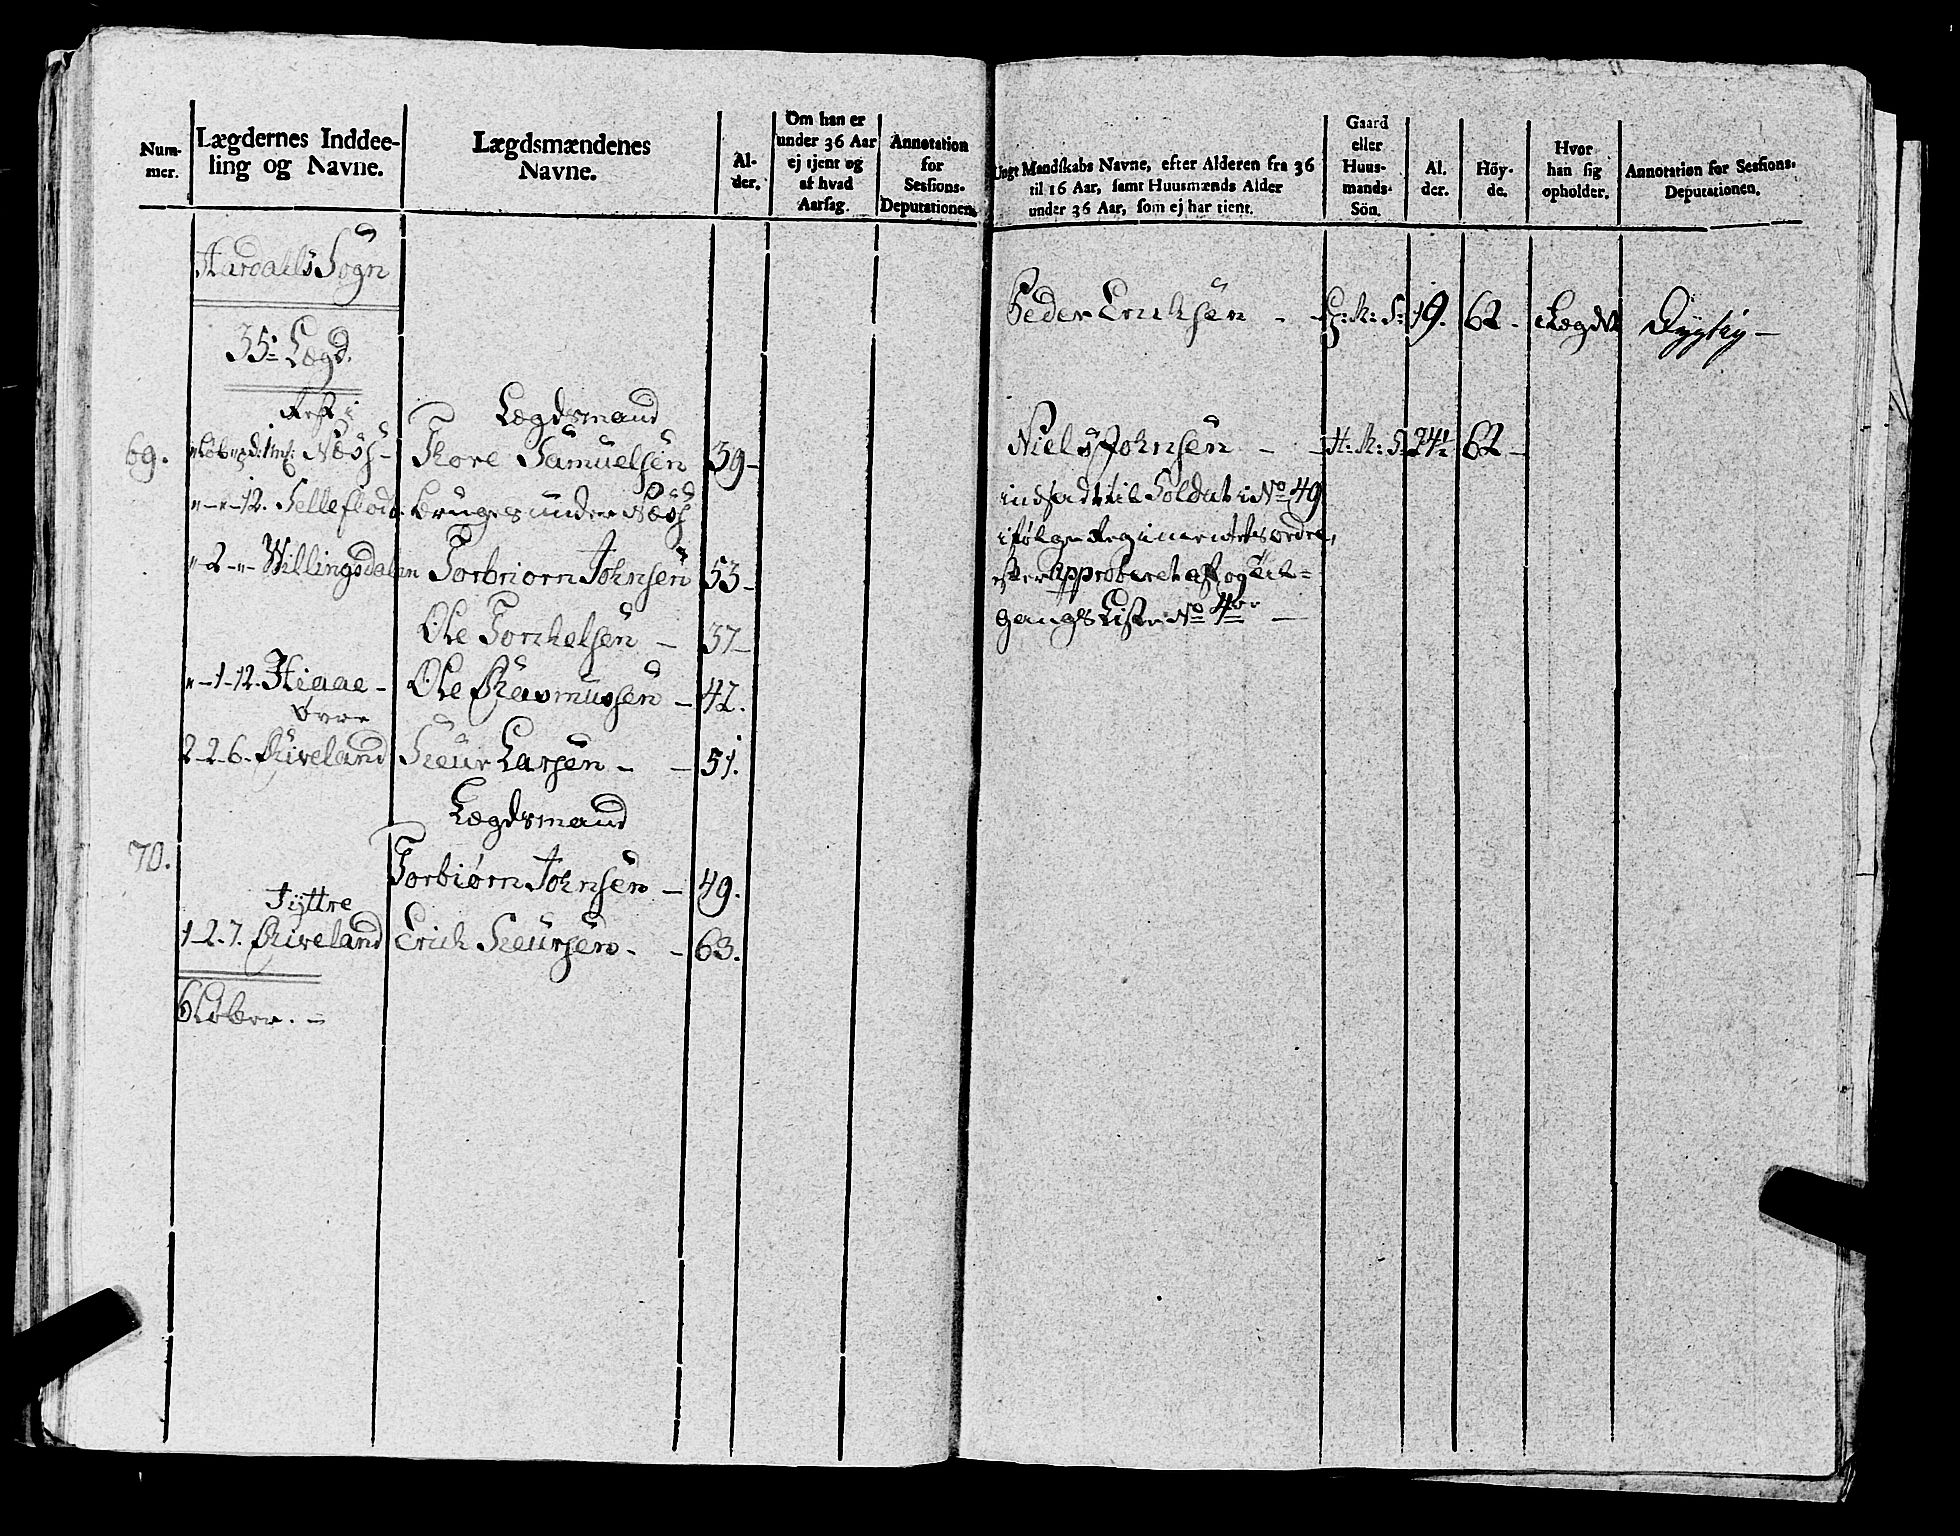 Num-
mer.
Lægdernes Inddee-
ling og Navne.
Lægdsmændenes
Navne.
Al-
der.
Om han er
under 36 Aar
ej tjent og
af hvad
Aarsag.
Annotation
for
Sessions-
Deputationen.
Aardahls Sogn
35te Lægd.
Lægdsmand
69.
Nøss
Thore Samuelsen
39
Bruges under Nøss
2
Willingsdalen
Torbriorn Johnsen
53
Ole Torchelsen
37
1-12. Hiaae
Ole Rasmussen
42.
Øvre
2-2.6. Riveland
Siur Larsen
51.
Lægdsmand
70.
Torbiørn Johnsen
49.
Jyttre
1-2.7. Riveland
Erich Siursen
63.
6 Løber.
Ungt Mandskabs Navne, efter Alderen fra 36
til 16 Aar, samt Huusmænds Alder
under 36 Aar, som ej har tient.
Gaard
eller
Huus-
mands-
Sön.
Al.
der.
Höy-
de.
Hvor
han sig
opholder.
Annotation for Sessions-
Deputationen.
Peder Erichsen
19.
62
Lægdet
Dygtig
Niels Johnsen
H: K: S:
24½
62
indsadt til Soldat i No 49
ifølge Regimentets ordre,
efter Approberet Af og Til-
gangs Liste No 4